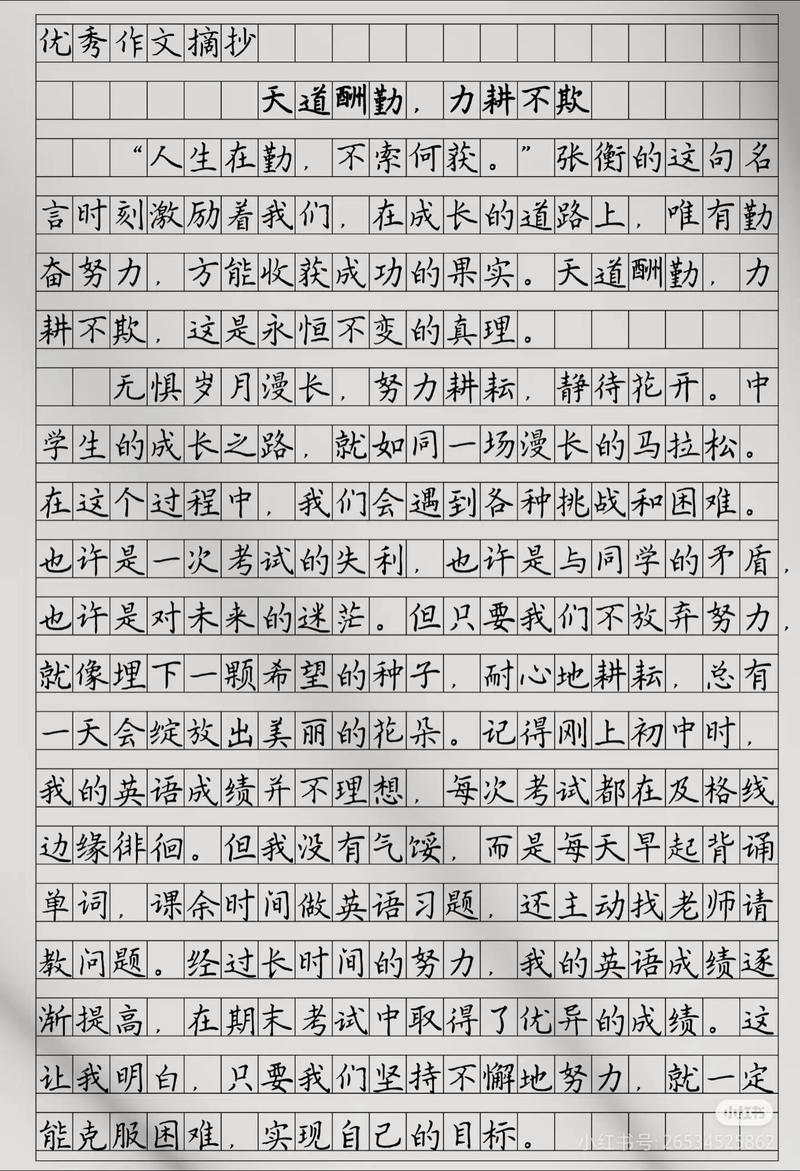 优秀作文摘抄
天道酬勤，力耕不欺
“人生在勤，不索何获。”张衡的这句名
言时刻激励着我们，在成长的道路上，唯有勤
奋努力，方能收获成功的果实。天道酬勤，力
耕不欺，这是永恒不变的真理。
无惧岁月漫长，努力耕耘，静待花开。中
学生的成长之路，就如同一场漫长的马拉松。
在这个过程中，我们会遇到各种挑战和困难。
也许是一次考试的失利，也许是与同学的矛盾，
也许是对未来的迷茫。但只要我们不放弃努力，
就像埋下一颗希望的种子，耐心地耕耘，总有
一天会绽放出美丽的花朵。记得刚上初中时，
我的英语成绩并不理想，每次考试都在及格线
边缘徘徊。但我没有气馁，而是每天早起背诵
单词，课余时间做英语习题，还主动找老师请
教问题。经过长时间的努力，我的英语成绩逐
渐提高，在期末考试中取得了优异的成绩。这
让我明白，只要我们坚持不懈地努力，就一定
能克服困难，实现自己的目标。
小红书
小红书号: 26534525862